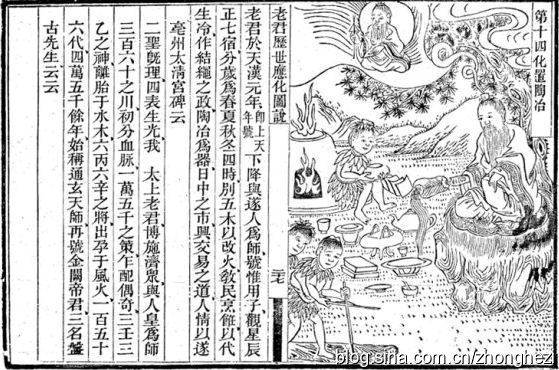 第十四化置陶冶
老君歷世應化圖說
老君於天漢元年卽上天年號下降與遂人爲師號惟用子觀星辰
正七宿分歲爲春夏秋冬四時別五木以改火敎民烹餁以代
生冷作結繩之政陶冶爲器日中之市興交易之道人情以遂
亳州太淸宮碑云
二聖旣理四表生光我 太上老君博施濟眾與人皇爲師
三百六十之川初分血脈一萬五千之策乍配偶奇三壬三
乙之神離胎于水木六丙六辛之將出孕于風火一百五十
六代四萬五千餘年始稱通玄天師再號金闕帝君三名盤
古先生云云
blog.sina.com.cn/zhonghezi